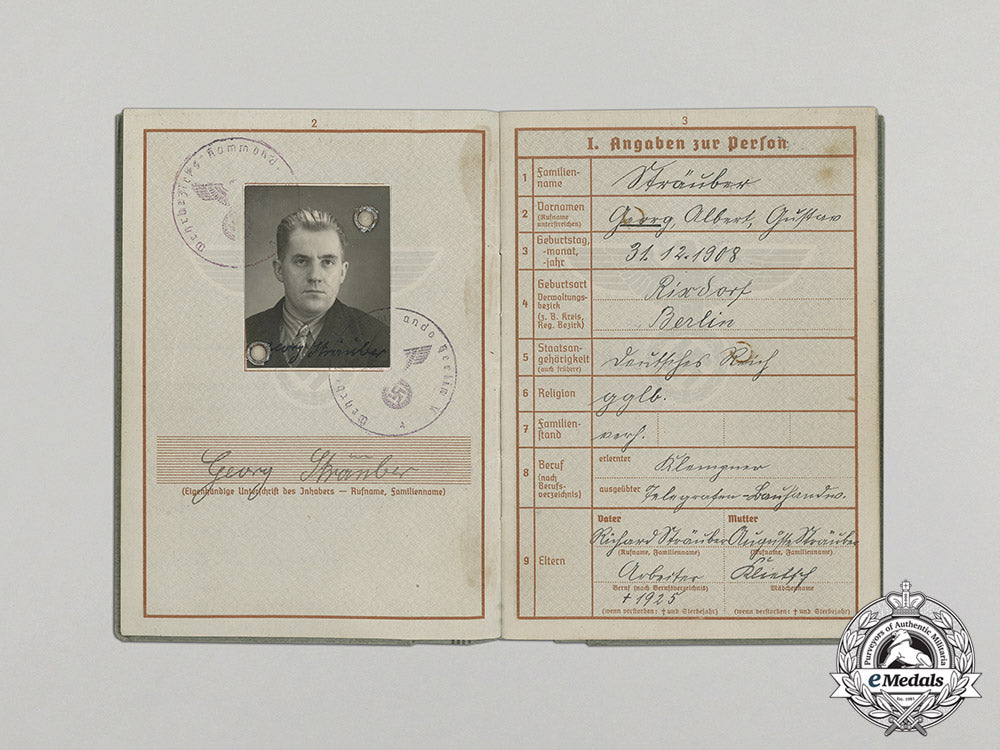 2
Wehrbezirks-Kommand
ando Berlin V
Wehrb
4
Georg Sträuber
Georg Sträuber
(Eigenhändige Unterschrift des Inhabers — Rufname, Familienname)
3
I. Angaben zur Person
1 Familien-
name
Sträuber
2 Vornamen
(Rufname
unterstreichen)
Georg, Albert, Gustav
3 Geburtstag,
-monat,
-jahr
31.12.1908
4 Geburtsort
Verwaltungs-
bezirk
(z. B. Kreis,
Reg. Bezirk)
Rixdorf
Berlin
5 Staatsan-
gehörigkeit
(auch frühere)
Deutsches Reich
6 Religion
gglb.
7 Familien-
stand
verh.
8 Beruf
(nach
Berufs-
verzeichnis)
erlernter
Klempner
ausgeübter
Telegrafen-Bauhandw.
9 Eltern
Vater Mutter
Richard Sträuber Auguste Sträuber
(Rufname, Familienname) (Rufname, Familienname)
Arbeiter Klietsch
Beruf (nach Berufsverzeichnis) Mädchenname
† 1925
(wenn verstorben: † und Sterbejahr) (wenn verstorben: † und Sterbejahr)
Purveyors of Authentic Militaria
eMedals
Est. 1985